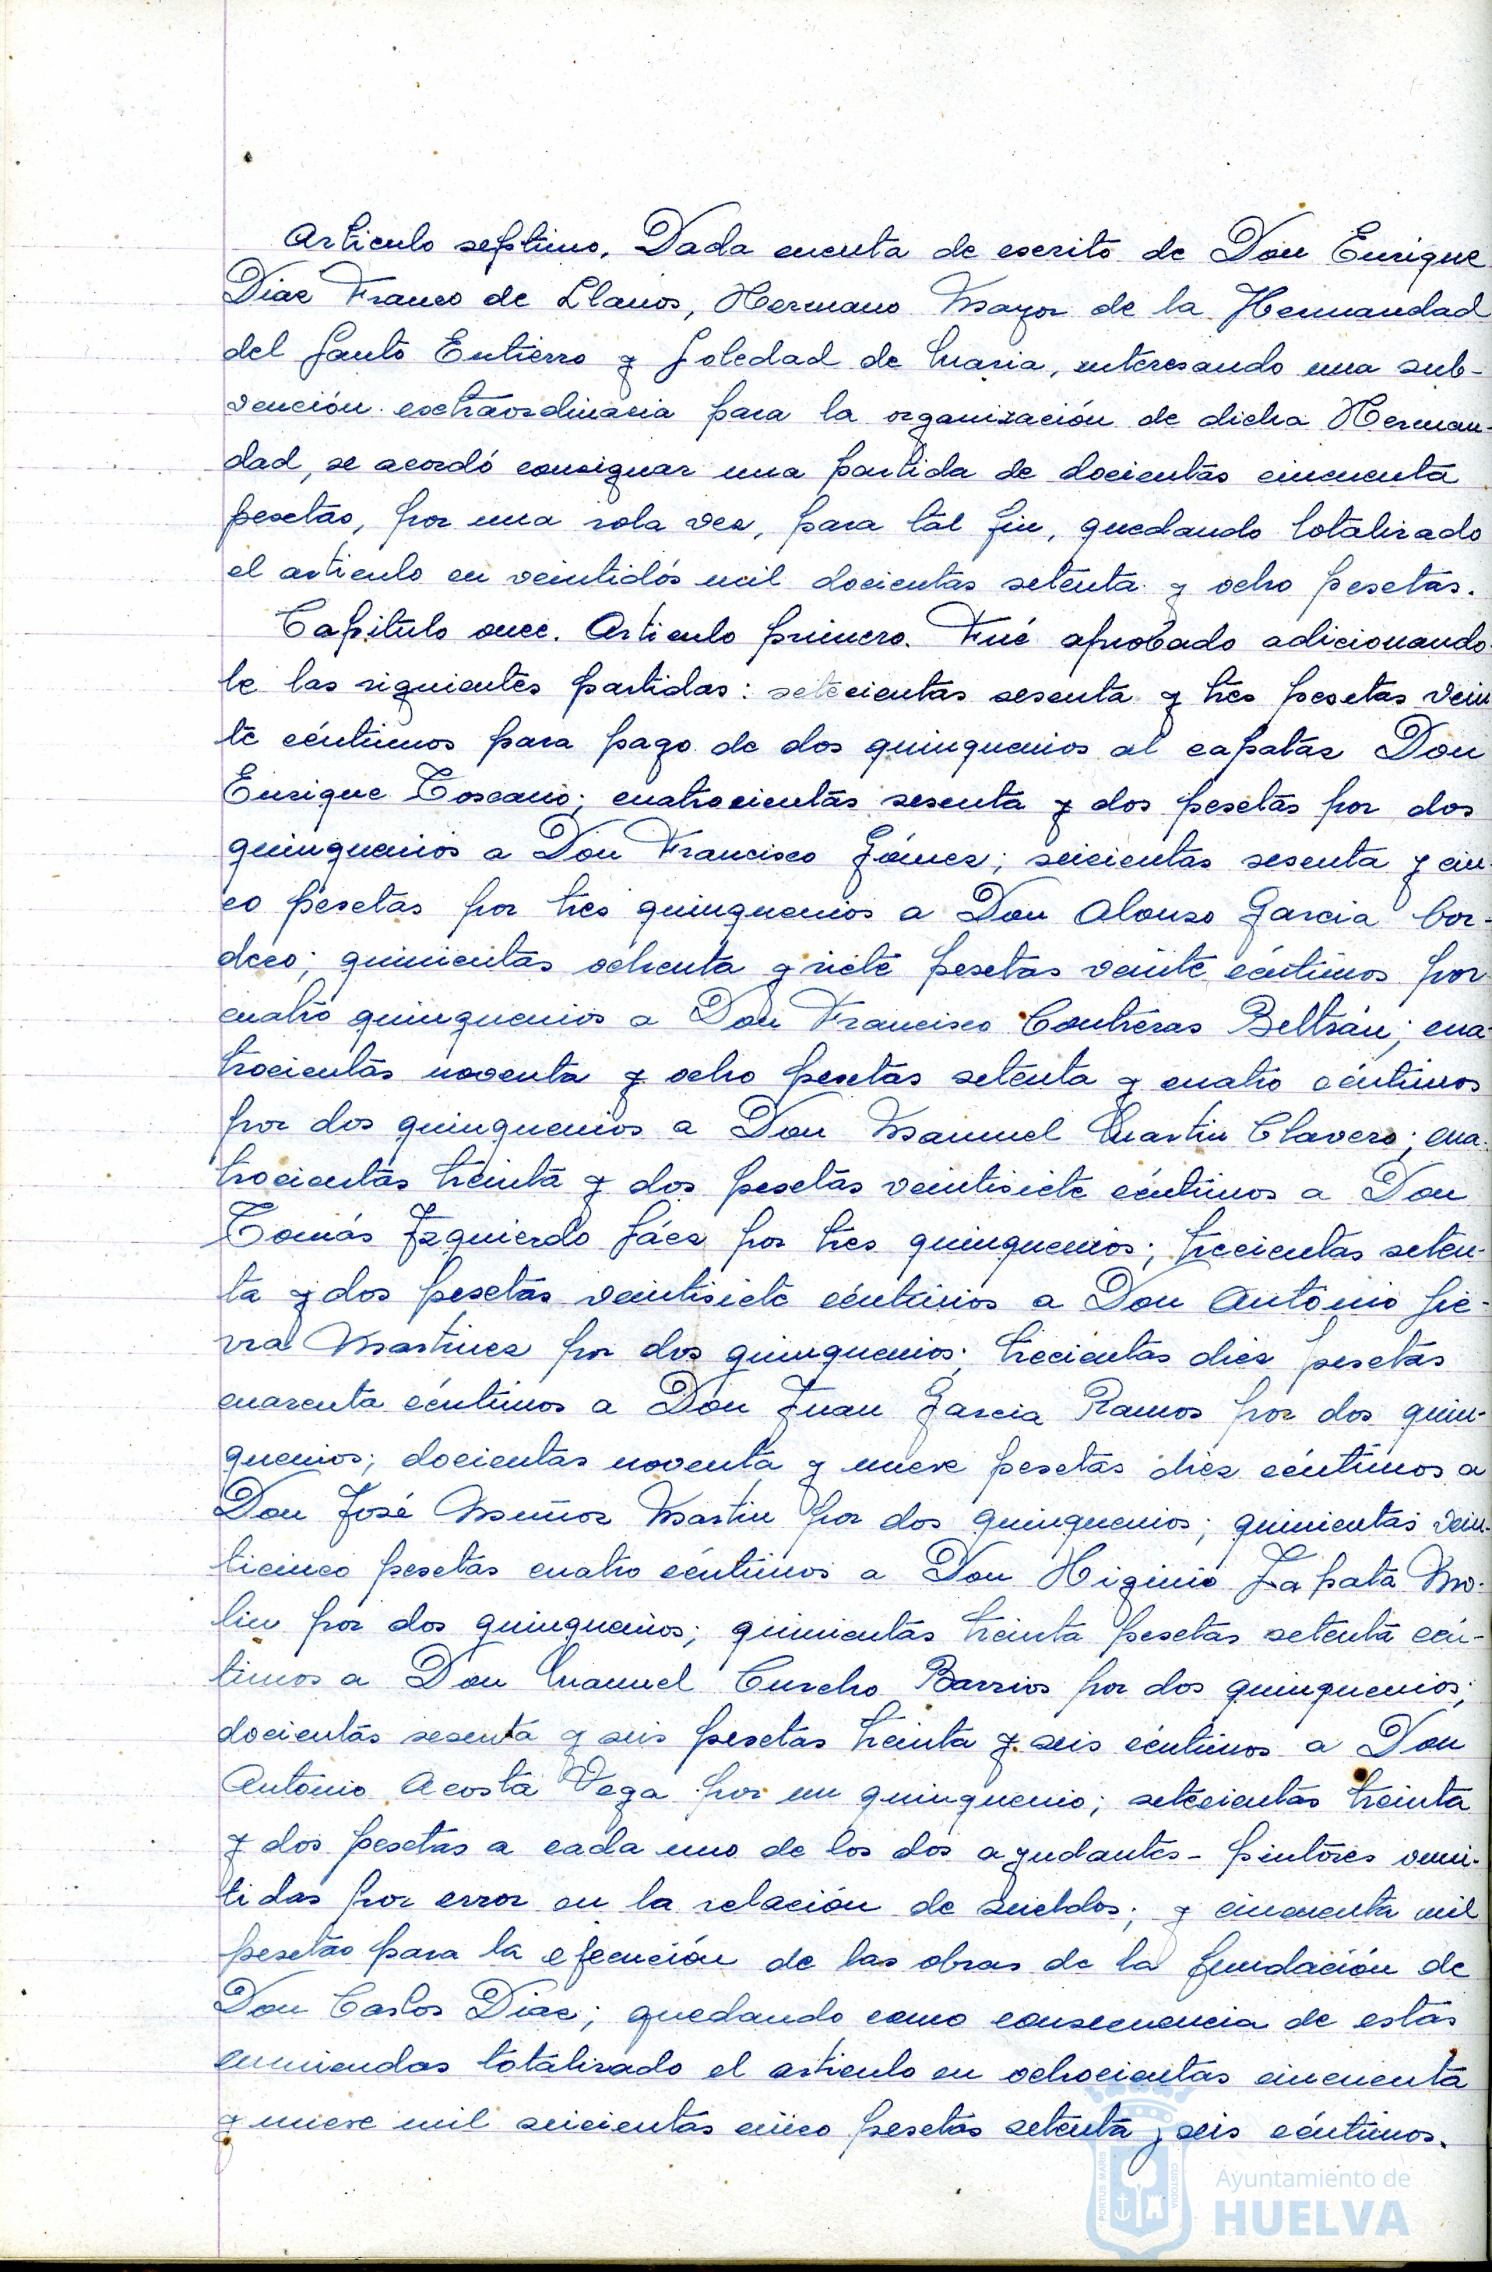 Articulo septimo. Dada cuenta de escrito de Don Enrique
Diaz Franco de Llanos, Hermano Mayor de la Hermandad
del Santo Entierro y Soledad de Maria, interesando una sub-
vención extraordinaria para la organización de dicha Herman-
dad, se acordó consignar una partida de docientas cincuenta
pesetas, por una sola vez, para tal fin, quedando totalizado
el articulo en veintidós mil docientas setenta y ocho pesetas.
Capitulo once. Articulo primero. Fué aprobado adicionando-
le las siguientes partidas: setecientas sesenta y tres pesetas vein
te céntimos para pago de dos quinquenios al capataz Don
Enrique Toscano; cuatrocientas sesenta y dos pesetas por dos
quinquenios a Don Francisco Gómez; seicientas sesenta y cin-
co pesetas por tres quinquenios a Don Alonso Garcia Cor-
dero; quinientas ochenta y siete pesetas veinte céntimos por
cuatro quinquenios a Don Francisco Contreras Beltrán; cua-
trocientas noventa y ocho pesetas setenta y cuatro céntimos
por dos quinquenios a Don Manuel Martin Clavero; cua-
trocientas treinta y dos pesetas veintisiete céntimos a Don
Tomás Izquierdo Sáez por tres quinquenios; trecientas seten-
ta y dos pesetas veintisiete céntimos a Don Antonio Sie-
rra Martinez por dos quinquenios; trecientas diez pesetas
cuarenta céntimos a Don Juan Garcia Ramos por dos quin-
quenios; docientas noventa y nueve pesetas diez céntimos a
Don José Muñoz Martin por dos quinquenios; quinientas vein-
ticinco pesetas cuatro céntimos a Don Higinio Zapata Mo-
lin por dos quinquenios; quinientas treinta pesetas setenta cén-
timos a Don Manuel Curcho Barrios por dos quinquenios;
docientas sesenta y seis pesetas treinta y seis céntimos a Don
Antonio Acosta Vega por un quinquenio; setecientas treinta
y dos pesetas a cada uno de los dos ayudantes-pintores omi-
tidas por error en la relación de sueldos; y cincuenta mil
pesetas para la ejecución de las obras de la fundación de
Don Carlos Diaz; quedando como consecuencia de estas
enmiendas totalizado el articulo en ochocientas cincuenta
y nueve mil seicientas cinco pesetas setenta y seis céntimos.
PORTUS MARIS
CUSTODIA
Ayuntamiento de
HUELVA